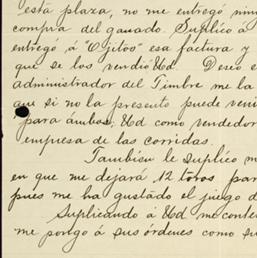 esta plaza, no me entregó nin
compra del ganado. Suplico á
entregó á "Ojitos" esa factura y
que se los vendió Ud. Deseo e
administrador del Timbre me la
que si no la presento puede veni
para ámbos; Ud como vendedor
empresa de las corridas.
Tambien le suplico m
en que me dejará 12 toros par
pues me ha gustado el juego d
Suplicando á Ud me conte
me pongo á sus órdenes como su